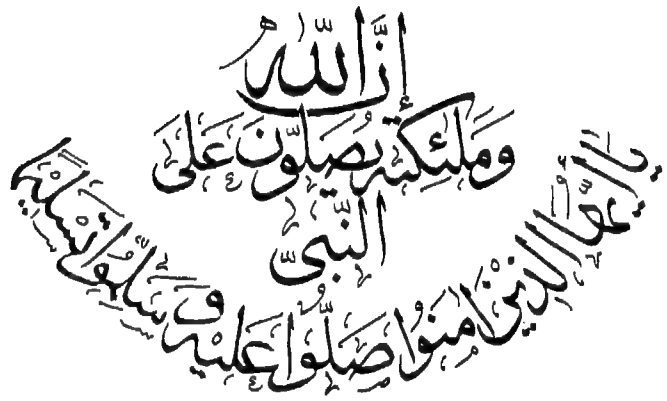 إِنَّ اللّٰه
وَمَلٰئِكَتَهُ يُصَلُّونَ عَلَى
النَّبِيِّ
يَا أَيُّهَا الَّذِينَ اٰمَنُوا صَلُّوا عَلَيْهِ وَسَلِّمُوا تَسْلِيمًا